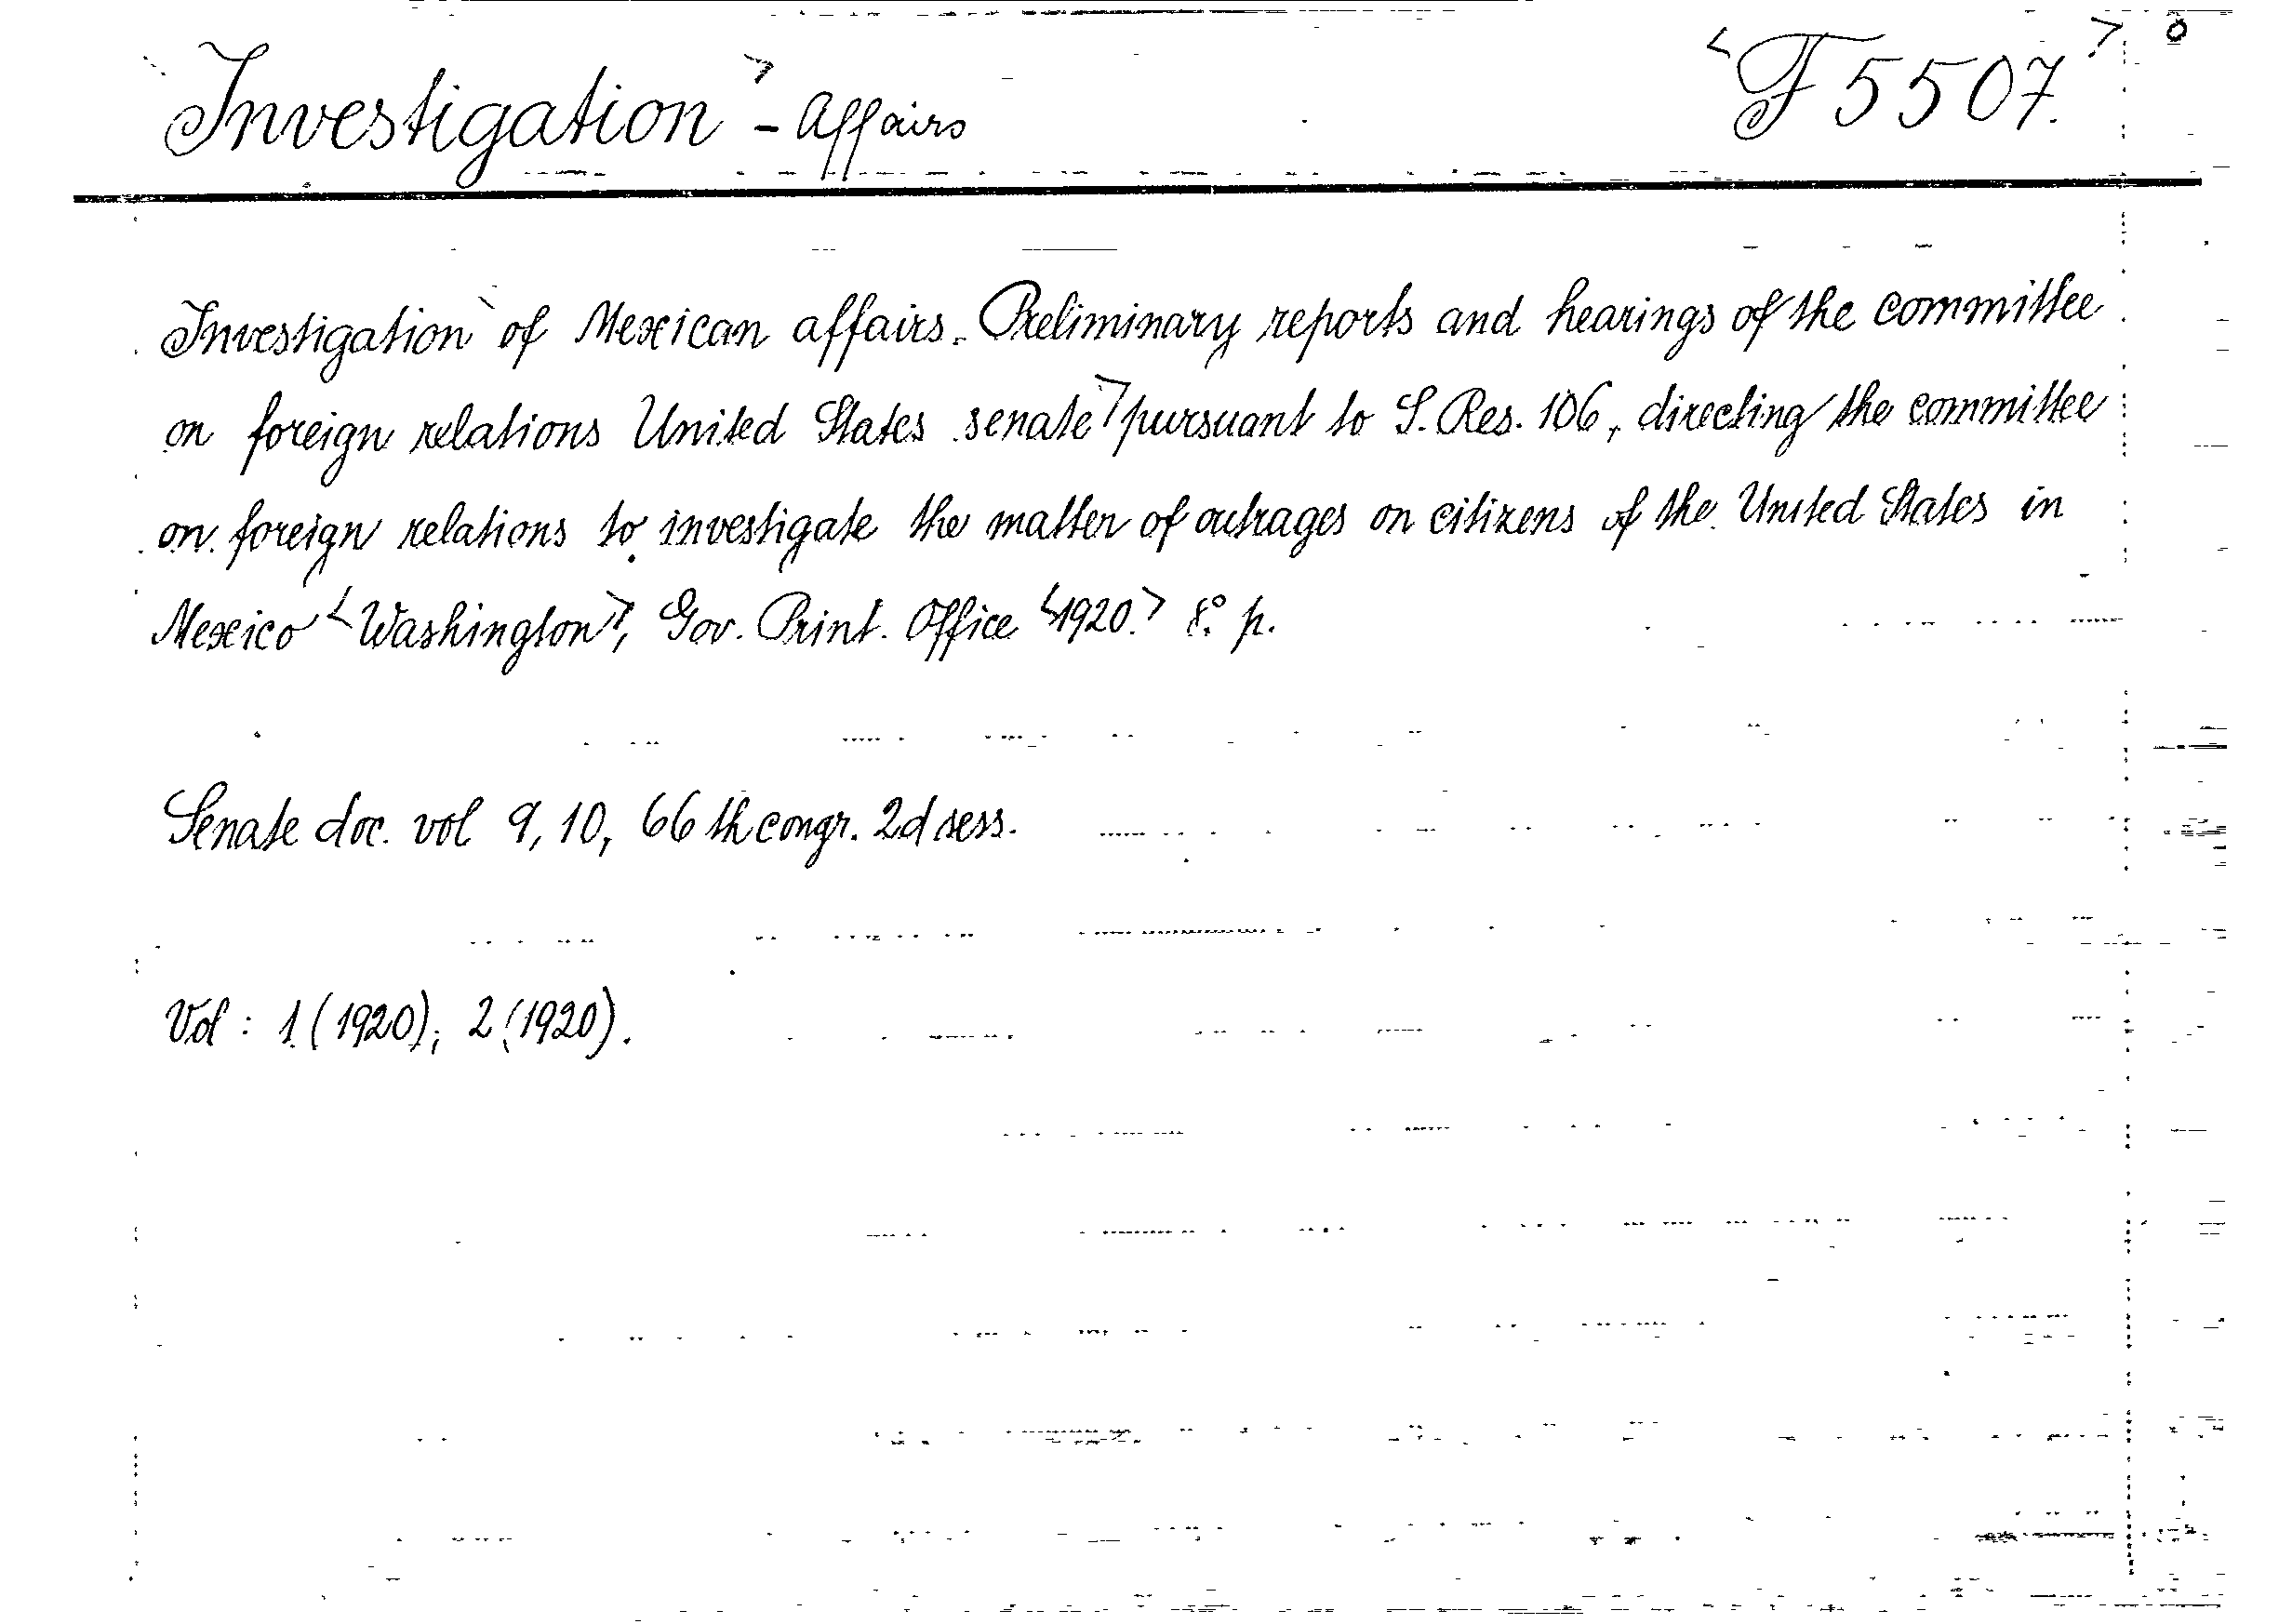 Investigation - Affairs F 5507.
Investigation of Mexican affairs. Preliminary reports and hearings of the committee
on foreign relations United States senate pursuant to S. Res. 106, directing the committee
on foreign relations to investigate the matter of outrages on citizens of the United States in
Mexico <Washington>, Gov. Print. Office <1920.> 8° p.
Senate doc. vol 9, 10, 66 th congr. 2d sess.
Vol : 1 (1920); 2 (1920).